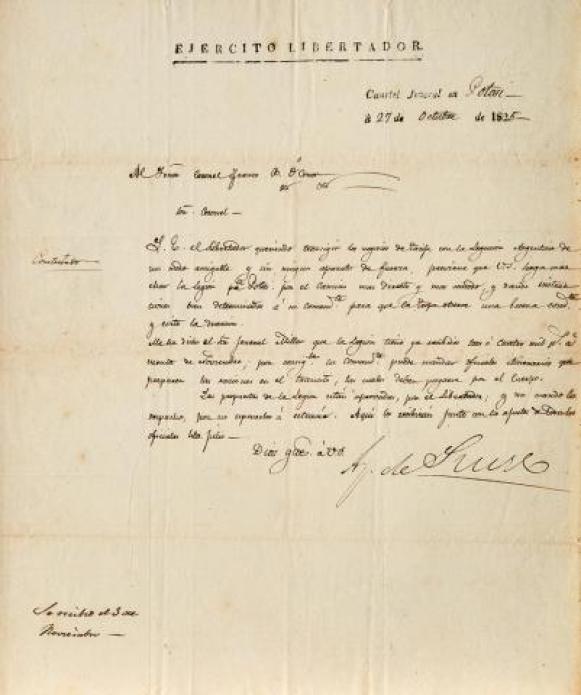 EJERCITO LIBERTADOR.
Cuartel Jeneral en Potosi
á 27 de Octubre de 1825
Al Señor Coronel Franco B. O'Conor
Sor. Coronel
Contestado
S. E. el Libertador queriendo transigir los negocios de tarija con la Legacion Argentina de
un modo amigable y sin ningun aparato de fuerza, previene que VS. haga mar
char la legion pa. Potosi por el camino mas directo y mas comodo, y dando instruc
ciones bien determinadas á su comandte. para que la tropa observe una buena condta.
y evite la
Me ha dicho el Sor. Jeneral Miller que la Legion tiene ya recibido tres ó cuatro mil ps. á
cuenta de Noviembre; por consigte. su comandte. puede mandar oficiales que
preparen las raciones en el transito, las cuales deben pagarse por el Cuerpo.
Las propuestas de la Legion estan aprovadas por el Libertador; y no mando los
despachos, por no esponerlos á estravio. Aqui los recibirán junto con los ajustes de
oficiales
Dios gue. á VS.
A. J. de Sucre
Se recibio el 3 de
Noviembre